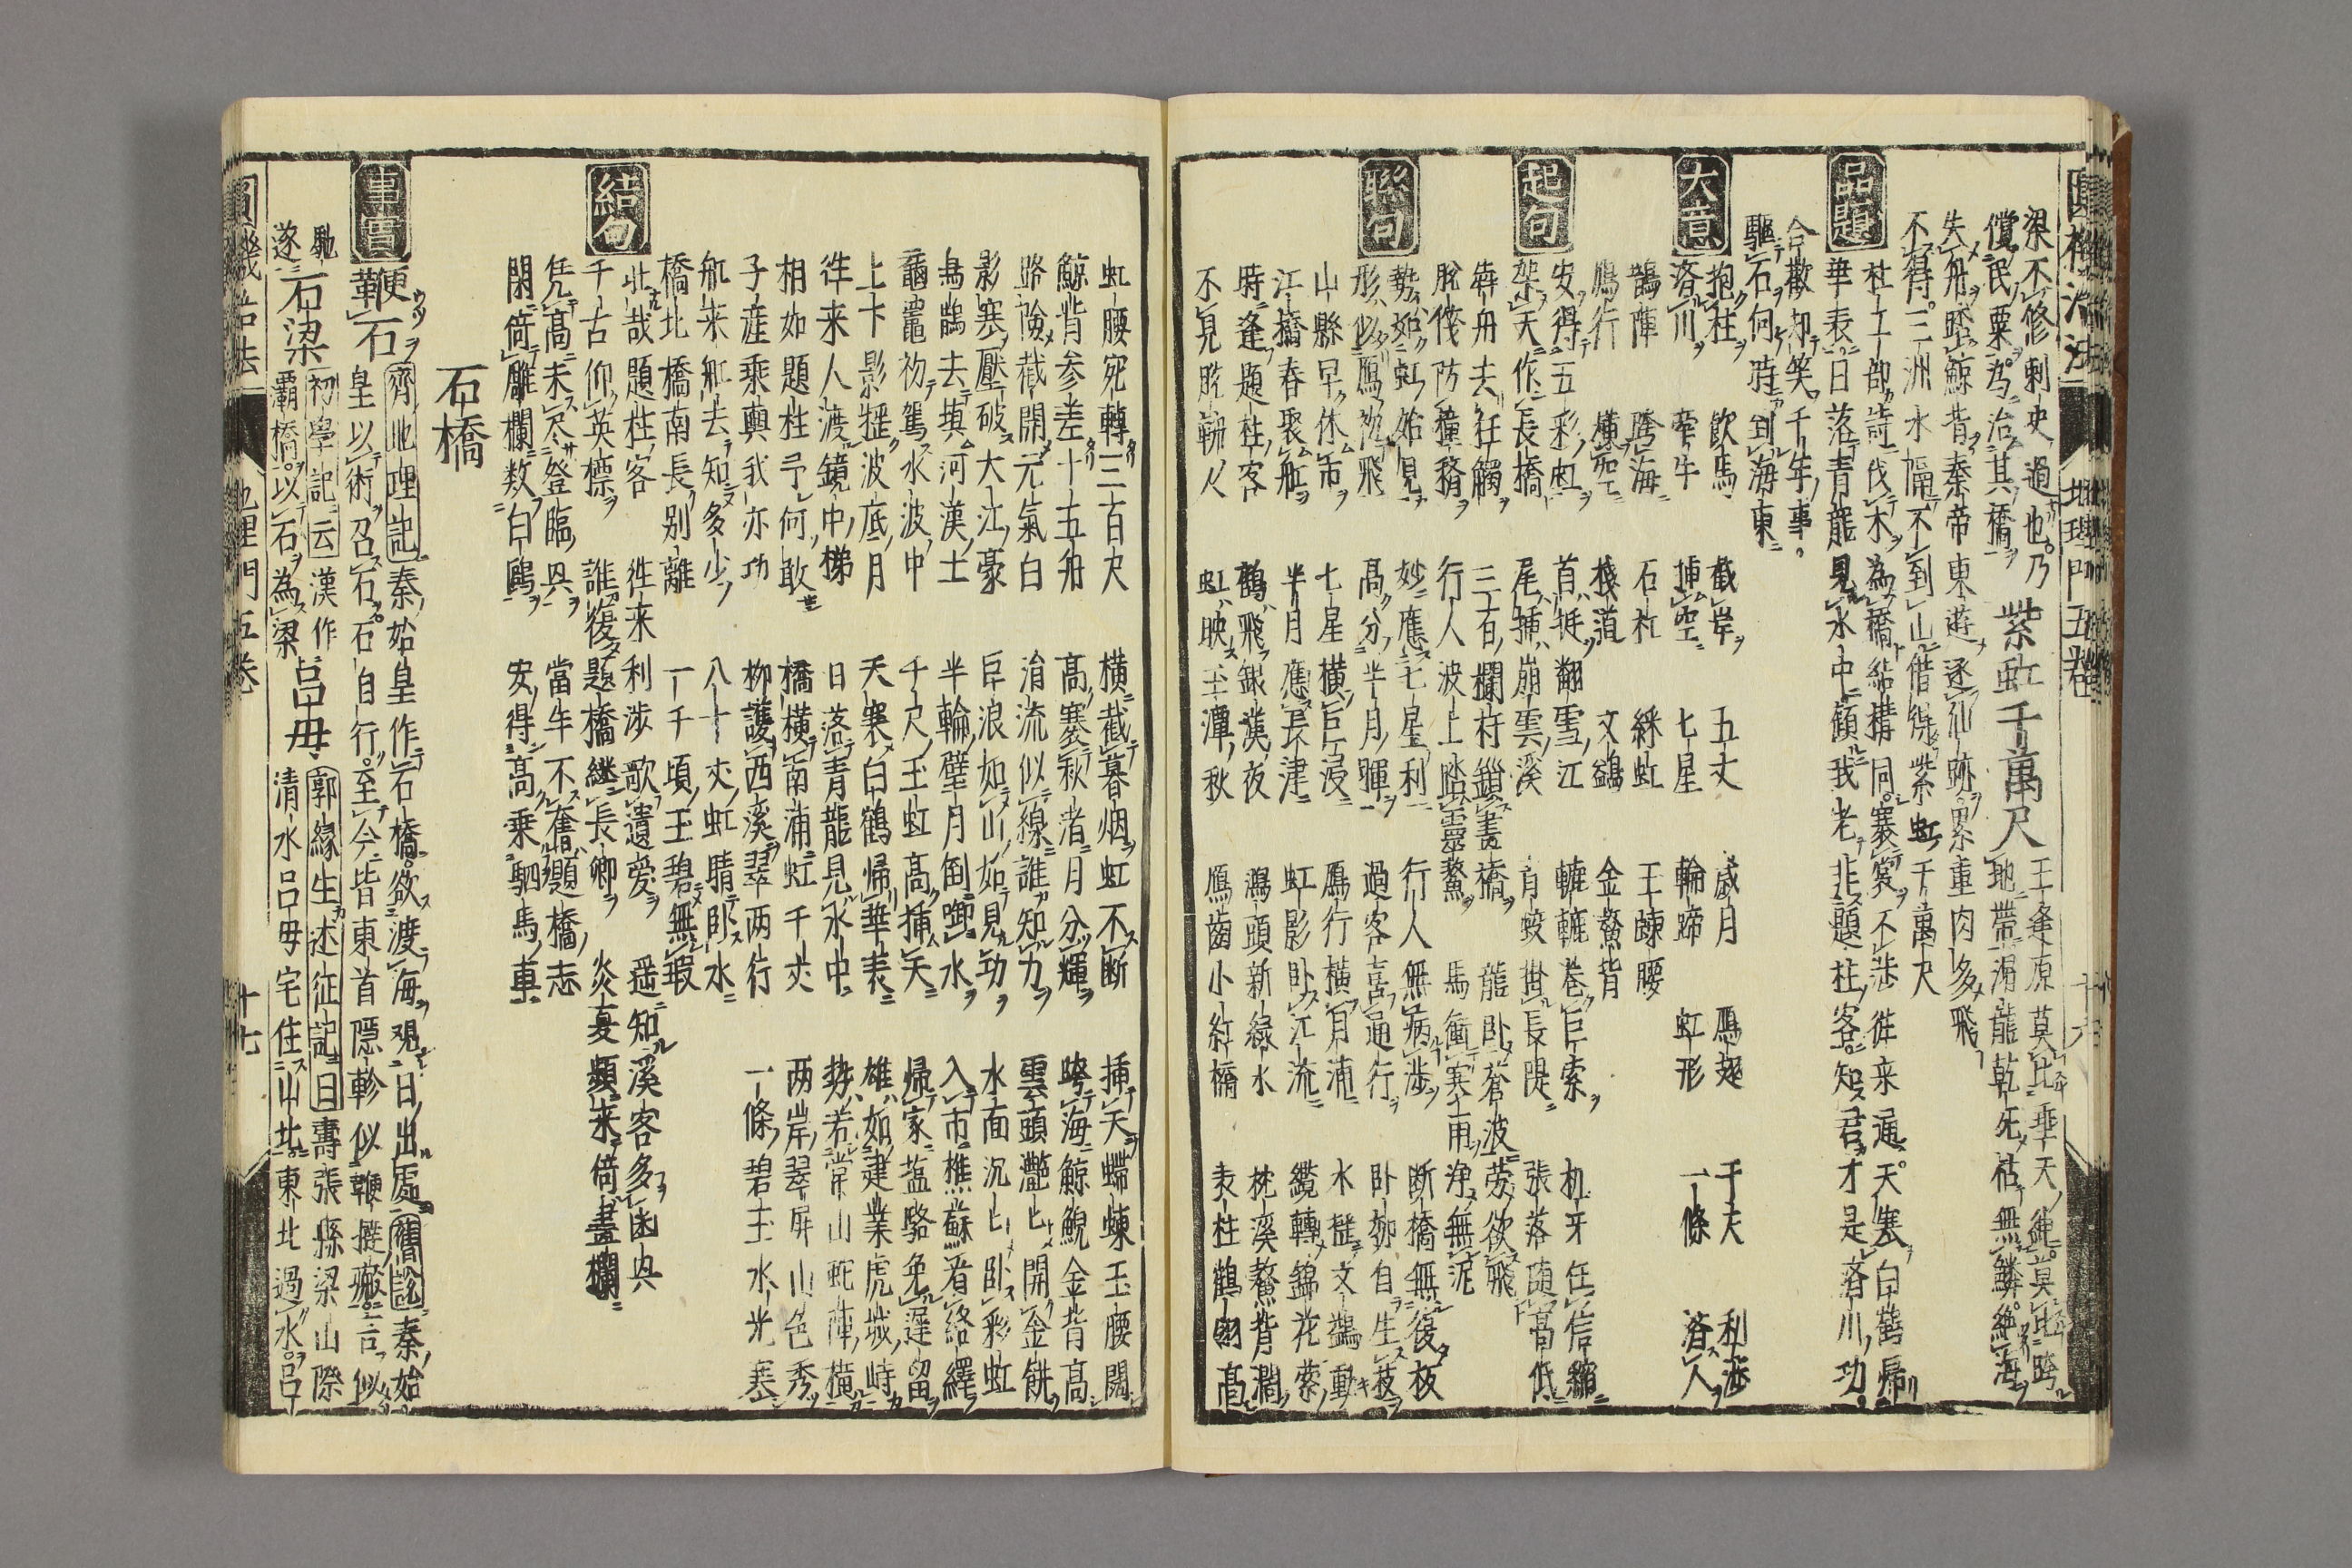 梁不修刺史過也乃 紫虹千萬尺 王逢原莫
償民粟為治其橋 地帶渭龍乾死枯無鱗絶海
失舟踏鯨背秦帝東遊逐仙跡累重肉多飛
不得三洲水隔不到山借得紫虹千萬尺
品題
杜工部詩伐木為橋結構同褰裳不渉徃来通天寒白鶴帰
華表日落青龍見水中顧我老非題柱客知君才是済川功
合歡却笑千年事
驅石何時到海東
大意
抱柱 飲馬 截岸 五丈 歳月 鴈起 千丈 利渉
済川 牽牛 挿空 七星 輪蹄 虹形 一條 済人
鵲陣 跨海 石杠 綵虹 玉蝀腰
鴈行 横空 棧道 文鷁 金鰲背
起句
安得五彩虹 首挺翻雪江 轆轆巻巨索 杠牙任信縮
架天作長橋 尾挿崩雲溪 育蛟掛長隄 張落随高低
犇舟去狂觸 三百欄杆鎖畫橋 龍卧蒼波勢欲飛
脱筏防撞搪 行人波上踏靈鰲 馬衝寒雨浄無泥
聯句
勢如虹始見 妙應七星利 行人無病渉 断橋無復板
形似鴈初飛 高分半月暉 過客喜通行 卧柳自生枝
山縣早休市 七星横巨浸 鴈行横月浦 水壓文鷁動
江橋春聚舡 半月應長津 虹影卧江流 纜轉錦花縈
時逢題柱客 鶴飛銀漢夜 鴻頭新緑水 枕溪鰲背濶
不見脱鞆人 虹映玉潭秋 鴈齒小紅橋 表柱鶴翎高
圓機活法 地理門五巻 十六
虹腰宛轉三百尺 横截暮烟虹不断 挿天螮蝀玉腰闊
鯨背参差十五舟 高褰秋渚月分輝 跨海鯨鯢金背高
路險截開元氣白 淯流似線誰知力 雲頭灔灔開金餅
影寒壓破大江豪 巨浪如山始見功 水面沉沉卧彩虹
烏鵲去填河漢士 半輪璧月倒啣水 入市樵蘇看絡繹
黿鼉初駕水波中 千尺玉虹高挿天 帰家塩駱免遅留
上下影揺波底月 天寒白鶴帰華表 雄如建業虎城峙
徃来人渡鏡中梯 日落青龍見水中 勢若常山蛇陣横
相如題柱予何敢 橋横南浦虹千丈 两岸翠屏山色秀
子産乗輿我亦功 柳護西溪翠两行 一條碧玉水光寒
舡来舡去知多少 八十丈虹晴卧水
橋北橋南長別離 一千頃玉碧無瑕
結句
壮哉題柱客 徃来利渉歌遺愛 遥知溪客多幽興
千古仰英標 誰復題橋継長卿 炎夏頻来倚畫欄
凭高未尽登臨興 當年不奮題橋志
閑倚雕欄数白鷗 安得高乗駟馬車
石橋
事實
鞭石 齊地理記秦始皇作石橋欲渡海観日出處舊説秦始
皇以術召石石自行至今皆東首隠軫似鞭撻瘢言似
馳 石梁 初學記云漢作 呂母 郭縁生述征記曰壽張縣梁山際
逐 覇橋以石為梁 清水呂母宅住山北東北過水呂
圓機活法 地理門五巻 十七